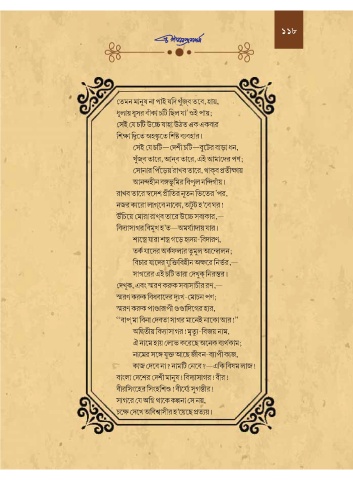 ১১৮
তেমন মানুষ না পাই যদি খুঁজব তবে, হায়,
ধূলায় ধূসর বাঁকা চটি ছিল যা' ওই পায়;
সেই যে চটি উচ্চে যাহা উঠত এক একবার
শিক্ষা দিতে অহঙ্কৃতে শিষ্ট ব্যবহার।
সেই যে চটি—দেশী চটি—বুটের বাড়া ধন,
খুঁজব তারে, আনব তারে, এই আমাদের পণ;
সোনার পিঁড়েয় রাখব তারে, থাকব প্রতীক্ষায়
আনন্দহীন বঙ্গভূমির বিপুল নন্দিগাঁয়।
রাখব তারে স্বদেশ প্রীতির নূতন ভিতের 'পর,
নজর কারো লাগবে নাকো, অটুট হ'বে ঘর!
উঁচিয়ে মোরা রাখব তারে উচ্চে সবাকার,—
বিদ্যাসাগর বিমুখ হ'ত—অমর্য্যাদায় যার।
শাস্ত্রে যারা শস্ত্র গড়ে হৃদয়-বিদারণ,
তর্ক যাদের অর্কফলার তুমুল আন্দোলন;
বিচার যাদের যুক্তিবিহীন অক্ষরে নির্ভর,—
সাগরের এই চটি তারা দেখুক নিরন্তর।
দেখুক, এবং স্মরণ করুক সব্যসাচীর রণ,—
স্মরণ করুক বিধবাদের দুঃখ-মোচন পণ;
স্মরণ করুক পাণ্ডারূপী গুণ্ডাদিগের হার,
"বাপ্ মা বিনা দেবতা সাগর মানেই নাকো আর।"
অদ্বিতীয় বিদ্যাসাগর! মৃত্যু-বিজয় নাম,
ঐ নামে হায় লোভ করেছে অনেক ব্যর্থকাম;
নামের সঙ্গে যুক্ত আছে জীবন-ব্যাপী কাজ,
কাজ দেবে না? নামটি নেবে?—একি বিষম লাজ!
বাংলা দেশের দেশী মানুষ! বিদ্যাসাগর! বীর!
বীরসিংহের সিংহশিশু! বীর্য্যে সুগম্ভীর!
সাগরে যে অগ্নি থাকে কল্পনা সে নয়,
চক্ষে দেখে অবিশ্বাসীর হ'য়েছে প্রত্যয়।